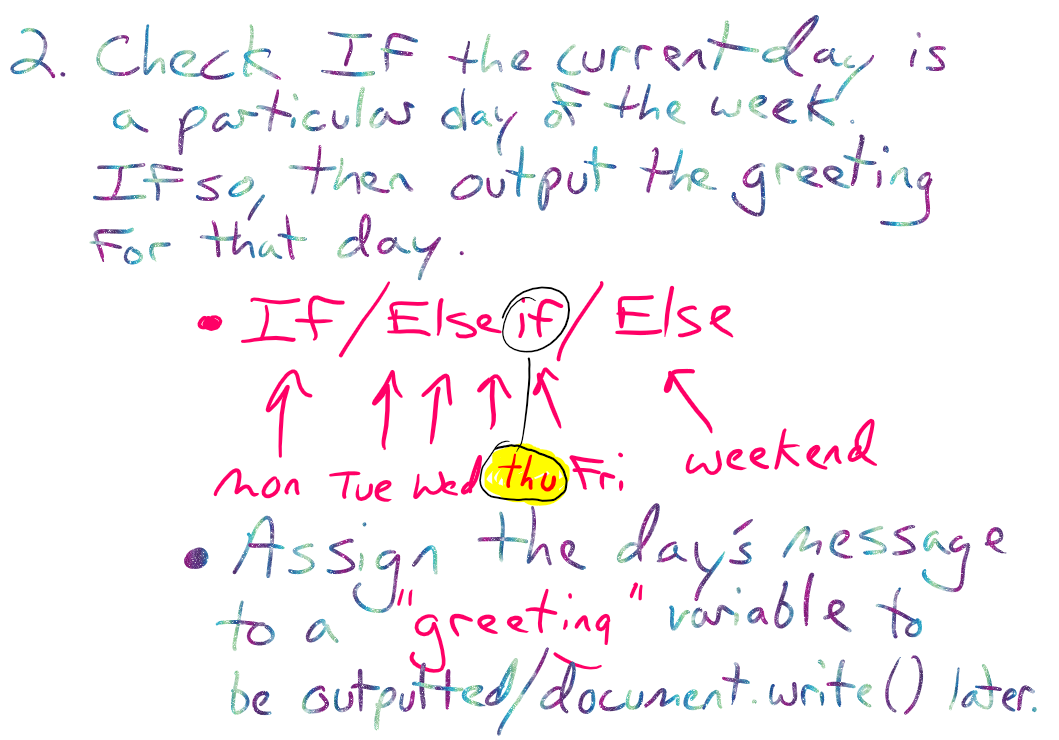 2. Check If the current day is
a particular day of the week.
If so, then output the greeting
for that day.
• If/Else if/Else
Mon Tue Wed thu Fri weekend
• Assign the day's message
to a "greeting" variable to
be outputted/document.write() later.